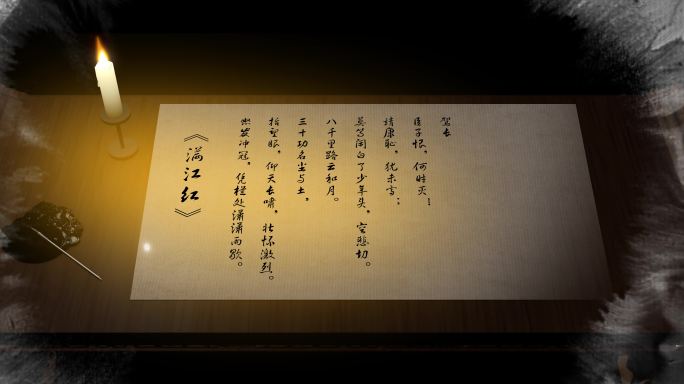 《满江红》
怒发冲冠，凭栏处潇潇雨歇。
抬望眼，仰天长啸，壮怀激烈。
三十功名尘与土，
八千里路云和月。
莫等闲白了少年头，空悲切。
靖康耻，犹未雪；
臣子恨，何时灭！
驾长